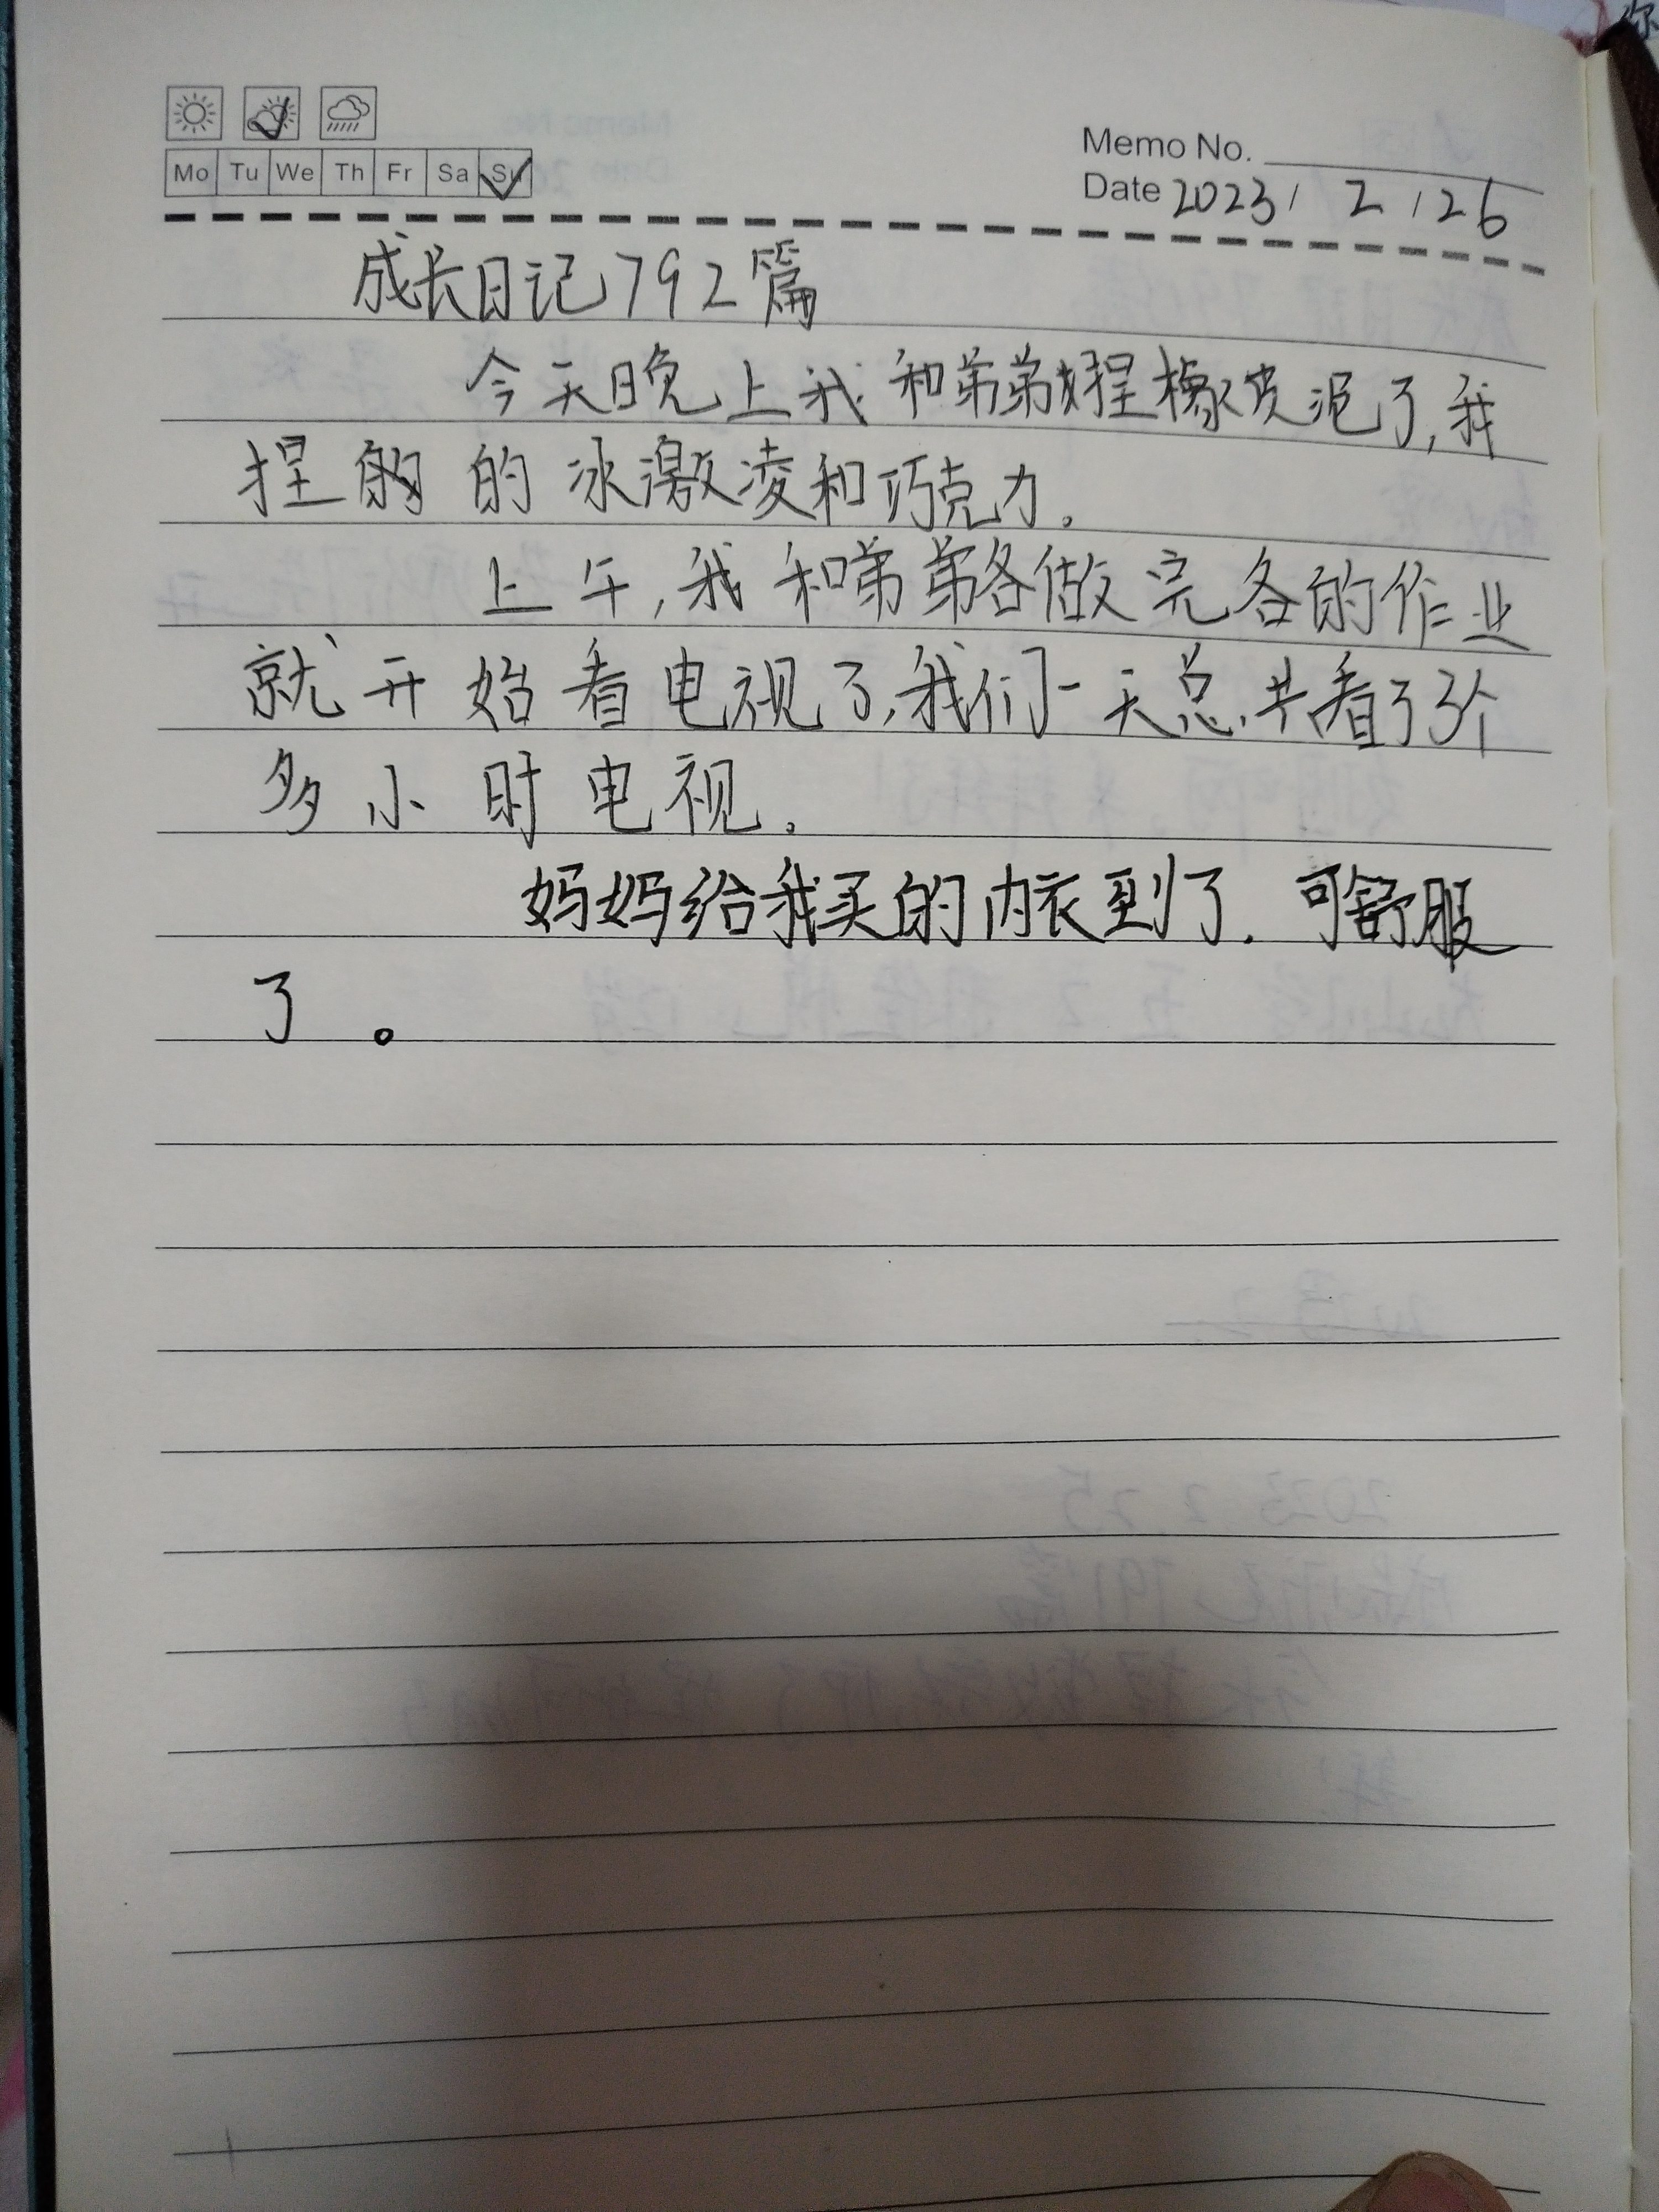 Mo Tu We Th Fr Sa Su
Memo No.
Date 2023/ 2 /26
成长日记792篇
今天晚上我和弟弟捏橡皮泥了,我
捏的 的冰激凌和巧克力。
上午,我和弟弟各做完各的作业
就开始看电视了,我们一天总共看了3个
多小时电视。
妈妈给我买的内衣到了.可舒服
了。